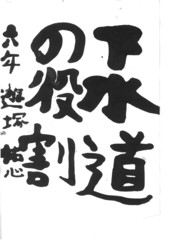 下水道
の役割
六年 遊塚 祐心